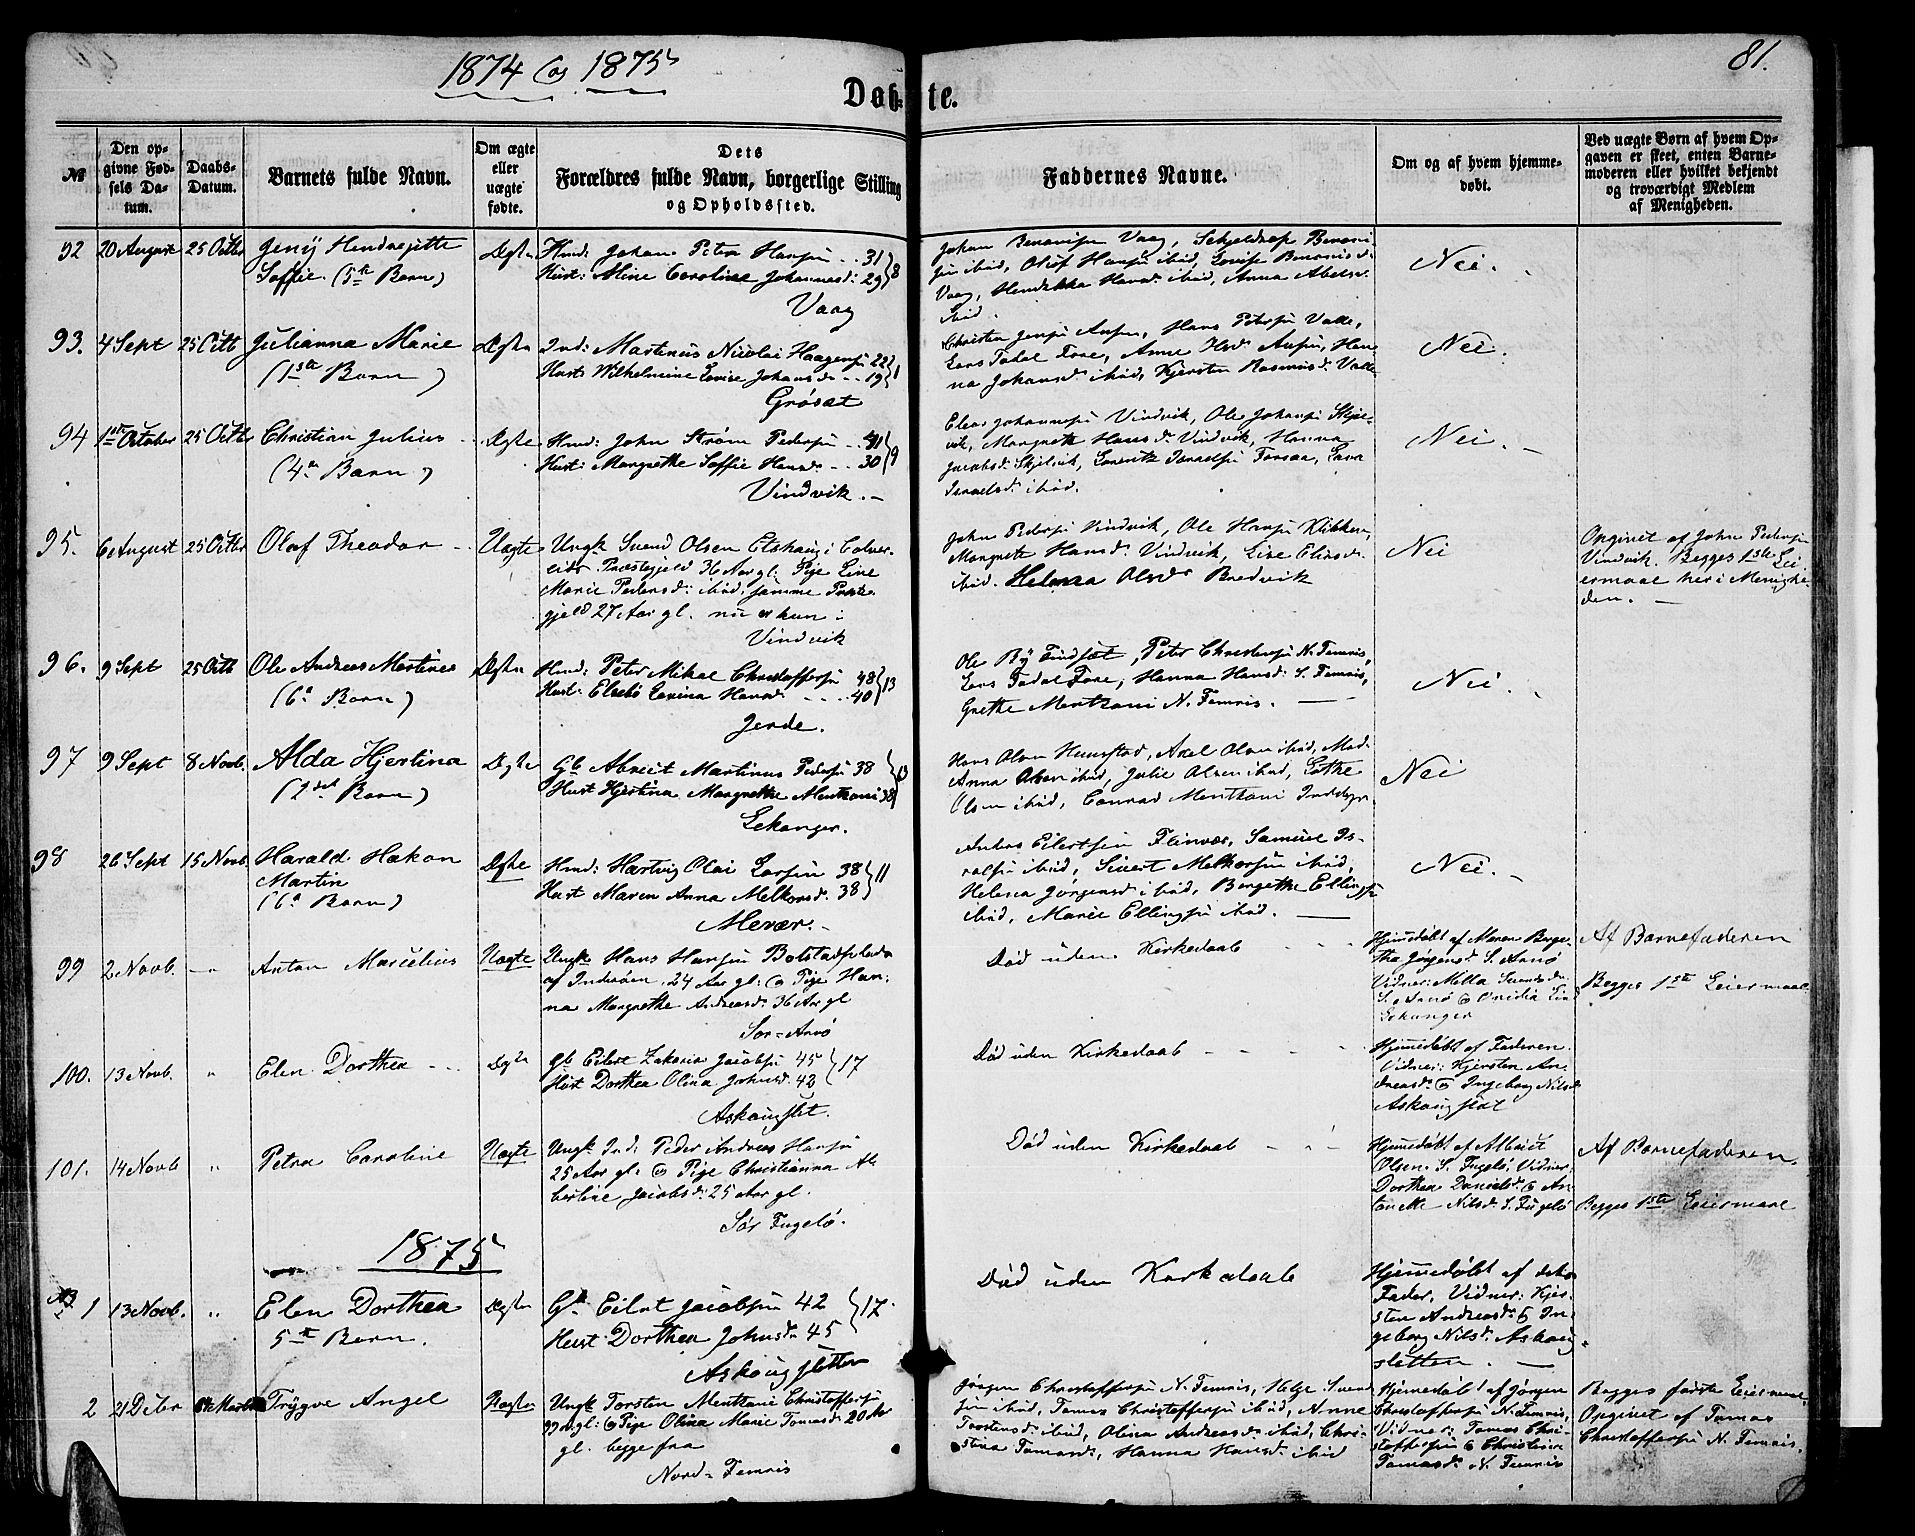 1874 og 1875
81.
Døbte.
№
Den opgivne Fødsels Datum.
Daabs-Datum.
Barnets fulde Navn.
Om ægte eller uægte fødte.
Dets Forældres fulde Navn, borgerlige Stilling og Opholdssted.
Faddernes Navne.
Om og af hvem hjemmedøbt.
Ved uægte Børn af hvem Opgaven er skeet, enten Barnemoderen eller hvilket bekjendt og troværdigt Medlem af Menigheden.
92 20 August 25 Octbr
Jenij Hendregitte
Soffie. (5te Barn)
Ægte
Hmd: Johan Peter Hansen .. 31
Hust: Aline Caroline Johannesd: 29 } 8
Vaag
Vaag, Hendrikka Hansd. ibid, Anna
ibid.
Nei.
93. 4 Sept 25 Octb
Julianna Marie
(1ste Barn)
Ægte
Ind: Martinus Nicolai Haagensen 22
Hust: Wilhelmine Lovise Johansd .. 19 } 1
Grøsæt
Christen Jensen, Hans Petersen Valle,
Lars Todal Fore, Anne Olsd, Han-
na Johansd. ibid, Kjersten Rasmusd. Valle
Nei.
94 1ste October 25 Octbr
Christian Julius
(4de Barn)
Ægte
Hmd: John Strøm Pedersen .. 31
Hust: Margrethe Soffie Hansd .. 30 } 9
Vindvik. -
Elias Johannessen Vindvik, Ole Johansen Skjel-
vik, Margrethe Hansd. Vindvik, Hanna
Jacobsd. Skjelvik, Israelsen Forsaa, Lava
Israelsd. ibid.
Nei.
95. 6 August 25 Octbr
Olaf Theodor
Uægte
Ungk. Svend Olsen i
Præstegjeld 36 Aar gl. Pige Line
Marie Pedersd. ibid. samme Præste-
gjeld 27 Aar gl. nu er hun i
Vindvik
John Pedersen Vindvik, Ole Hansen
Margrethe Hansd. Vindvik, Line Eliasd.
ibid. Helena Olsd. Bredvik
Nei
Opgivet af John Pedersen
Vindvik. Begges 1ste Lei-
ermaal her i Menighe-
den. -
96. 9 Sept 25 Octb
Ole Andreas Martines
(6te Barn)
Ægte
Hmd: Peter Mikal Christoffersen 48
Hust: Elsebe Lovina Hansd .. 40 } 13
Jende.
Ole By Eindset, Peter Christensen N. Femris,
Lars Todal Fore, Hanna Hansd. S. Femris,
Grethe Mentzoni N. Femris.
Nei
97 9 Sept 8 Novb.
Alda Hjertina
(2det Barn)
Ægte
Gb Abreit Martinus Pedersen 38
Hust Hjertina Margrethe Mentzoni 38 } 13
Lekanger.
Hans Olsen Hunstad, Axel Olsen ibid, Mad.
Anna Olsen ibid, Julie Olsen ibid, Lothe
Olsen ibid, Conrad Mentzoni
Nei
98 26 Sept 15 Novb.
Harald Hakon
Martin
(6te Barn)
Ægte
Hmd: Hartvig Olai Larsen 38
Hust Maren Anna Melkorsd. 38 } 11
Mevær. -
Anders Eilertsen Fleinvær, Samuel Is-
ralsen ibid, Sivert Melkorsen ibid,
Helena Jørgensd. ibid, Bergethe Ellingsen
ibid, Marie Ellingsen ibid.
Nei.
99 2 Novb.
Anton Marselius
Uægte
Ungk. Hans Hansen
af Inderøen, 24 Aar gl: og Pige Han-
na Margrethe Andreasd. 36 Aar gl
Sør-Arnø
Død uden Kirkedaab
Hjemedøbt af Maren Berge-
tha Jørgensd. S. Arnø
Vidner: Mella
S. Arnø og
Lekanger
Af Barnefaderen
Begges 1ste Leiermaal
100. 13 Novb.
Elen Dorthea
Ægte
Gb Eilert Zakarias Jacobsen 45
Hust Dorthea Olina Johnsd. 42 } 17
Askougslet.
Død uden Kirkedaab
Hjemedøbt af Faderen.
Vidner: Kjersten An-
dreasd. og Ingeborg Nilsd.
Askougslet
101. 14 Novb
Petra Caroline
Uægte
Ungk Ind: Peder Andreas Hansen
25 Aar gl: og Pige Christianna Al-
bertine Jacobsd. 25 Aar gl.
Sør Fugelø.
Død uden Kirkedaab
Hjemedøbt af Albrict
Olsen S. Fugelø, Vidner:
Dorthea Danielsd. og An-
tonette Nilsd. S. Fugelø
Af Barnefaderen.
Begges 1ste Leiermaal
1875
№ 1 13 Novb.
Elen Dorthea
5te Barn.
Ægte
Gb Eilert Jacobsen 42
Hust Dorthea Johnsd. 45 } 17.
Askougsletten
Død uden Kirkedaab
Hjemmedøbt af dets
Fader, Vidner: Kjer-
sten Andreasd. og In-
geborg Nilsd. Askoug-
sletten. -
2 21 Decbr Marts
Trygve Angel
Uægte
Ungk Torsten Mentzoni Christoffersen
Aar gl: og Pige Olina Marie Tomasd. 20 Aar
gl. begge fra
Nord-Femris
Jørgen Christoffersen N. Femris, Helge Svend-
sen ibid, Tomas Christoffersen ibid, Anne
Torstensd. ibid, Olina Andreasd. ibid, Chri-
stina Tomasd., Hanna Hansd. ibid
Hjemedøbt af Jørgen
Christoffersen N. Femris,
Vidner: Tomas Chri-
stoffersen og Christine
Tomasd. N. Femris
Begges første Leiermaal.
Opgivet af Tomas
Christoffersen N. Femris.